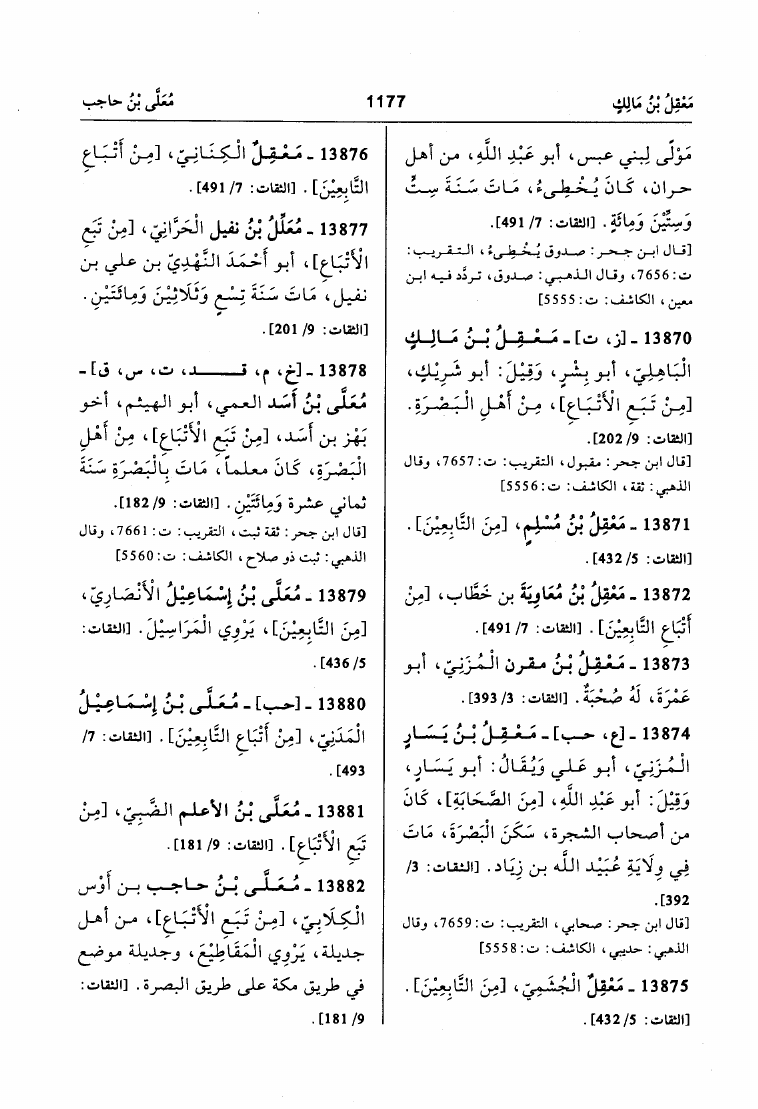 مَعْقِلُ بْنُ مَالِكٍ
1177
مُعَلَّى بْنُ حاجب
مَوْلًى لِبني عبس، أبو عَبْدِ اللَّهِ، من أهل
حران، كَانَ يُخْطِىءُ، مَاتَ سَنَةَ سِتٍّ
وَسِتِّيْنَ وَمِائَةٍ. [الثقات: 7/ 491].
[قال ابن حجر: صدوق يُخْطِىءُ، التقريب:
ت:7656، وقال الذهبي: صدوق، تردَّد فيه ابن
معين، الكاشف: ت:5555]
13870 ـ [ز، ت] ـ مَعْقِلُ بْنُ مَالِكٍ
الْبَاهِلِيّ، أبو بِشْرٍ، وَقِيْلَ: أبو شَرِيْكٍ،
[مِنْ تَبَعِ الأَتْبَاعِ]، مِنْ أَهْلِ الْبَصْرَةِ.
[الثقات: 9/ 202].
[قال ابن حجر: مقبول، التقريب: ت:7657، وقال
الذهبي: ثقة، الكاشف: ت:5556]
13871 ـ مَعْقِلُ بْنُ مُسْلِمٍ، [مِنَ التَّابِعِيْنَ].
[الثقات: 5/ 432].
13872 ـ مَعْقِلُ بْنُ مُعَاوِيَةَ بن خَطَّاب، [مِنْ
أَتْبَاعِ التَّابِعِيْنَ]. [الثقات: 7/ 491].
13873 ـ مَعْقِلُ بْنُ مقرن الْمُزَنِيّ، أبو
عَمْرَةَ، لَهُ صُحْبَةٌ. [الثقات: 3/ 393].
13874 ـ [ع، حب] ـ مَعْقِلُ بْنُ يَسَارٍ
الْمُزَنِيّ، أبو علي وَيُقَالُ: أبو يَسَارٍ،
وَقِيْلَ: أبو عَبْدِ اللَّهِ، [مِنَ الصَّحَابَةِ]، كَانَ
من أصحاب الشجرة، سَكَنَ الْبَصْرَةَ، مَاتَ
فِي وِلَايَةِ عُبَيْدِ اللَّه بن زِيَاد. [الثقات: 3/
392].
[قال ابن حجر: صحابي، التقريب: ت:7659، وقال
الذهبي: حديبي، الكاشف: ت:5558]
13875 ـ مَعْقِلٌ الْجُشَمِيّ، [مِنَ التَّابِعِيْنَ].
[الثقات: 5/ 432].
13876 ـ مَعْقِلٌ الْكِنَانِيّ، [مِنْ أَتْبَاعِ
التَّابِعِيْنَ]. [الثقات: 7/ 491].
13877 ـ مُعَلِّلُ بْنُ نفيل الْحَرَّانِيّ، [مِنْ تَبَعِ
الأَتْبَاعِ]، أبو أَحْمَدَ النَّهْدِيّ بن علي بن
نفيل، مَاتَ سَنَةَ تِسْعٍ وَثَلَاثِيْنَ وَمِائَتَيْنِ.
[الثقات: 9/ 201].
13878 ـ [خ، م، قـــد، ت، س، ق] ـ
مُعَلَّى بْنُ أَسَد العمي، أبو الهيثم، أخو
بَهْز بن أَسَد، [مِنْ تَبَعِ الأَتْبَاعِ]، مِنْ أَهْلِ
الْبَصْرَةِ، كَانَ معلماً، مَاتَ بِالْبَصْرَةِ سَنَةَ
ثماني عشرة وَمِائَتَيْنِ. [الثقات: 9/ 182].
[قال ابن حجر: ثقة ثبت، التقريب: ت: 7661، وقال
الذهبي: ثبت ذو صلاح، الكاشف: ت:5560]
13879 ـ مُعَلَّى بْنُ إِسْمَاعِيْلَ الأَنْصَارِيّ،
[مِنَ التَّابِعِيْنَ]، يَرْوِي الْمَرَاسِيْلَ. [الثقات:
5/ 436].
13880 ـ [حب] ـ مُعَلَّى بْنُ إِسْمَاعِيْلَ
الْمَدَنِيّ، [مِنْ أَتْبَاعِ التَّابِعِيْنَ]. [الثقات: 7/
493].
13881 ـ مُعَلَّى بْنُ الأعلم الضَّبِّيّ، [مِنْ
تَبَعِ الأَتْبَاعِ]. [الثقات: 9/ 181].
13882 ـ مُعَلَّى بْنُ حاجب بن أَوْس
الْكِلَابِيّ، [مِنْ تَبَعِ الأَتْبَاعِ]، من أهل
جديلة، يَرْوِي الْمَقَاطِيْعَ، وجديلة موضع
في طريق مكة على طريق البصرة. [الثقات:
9/ 181].